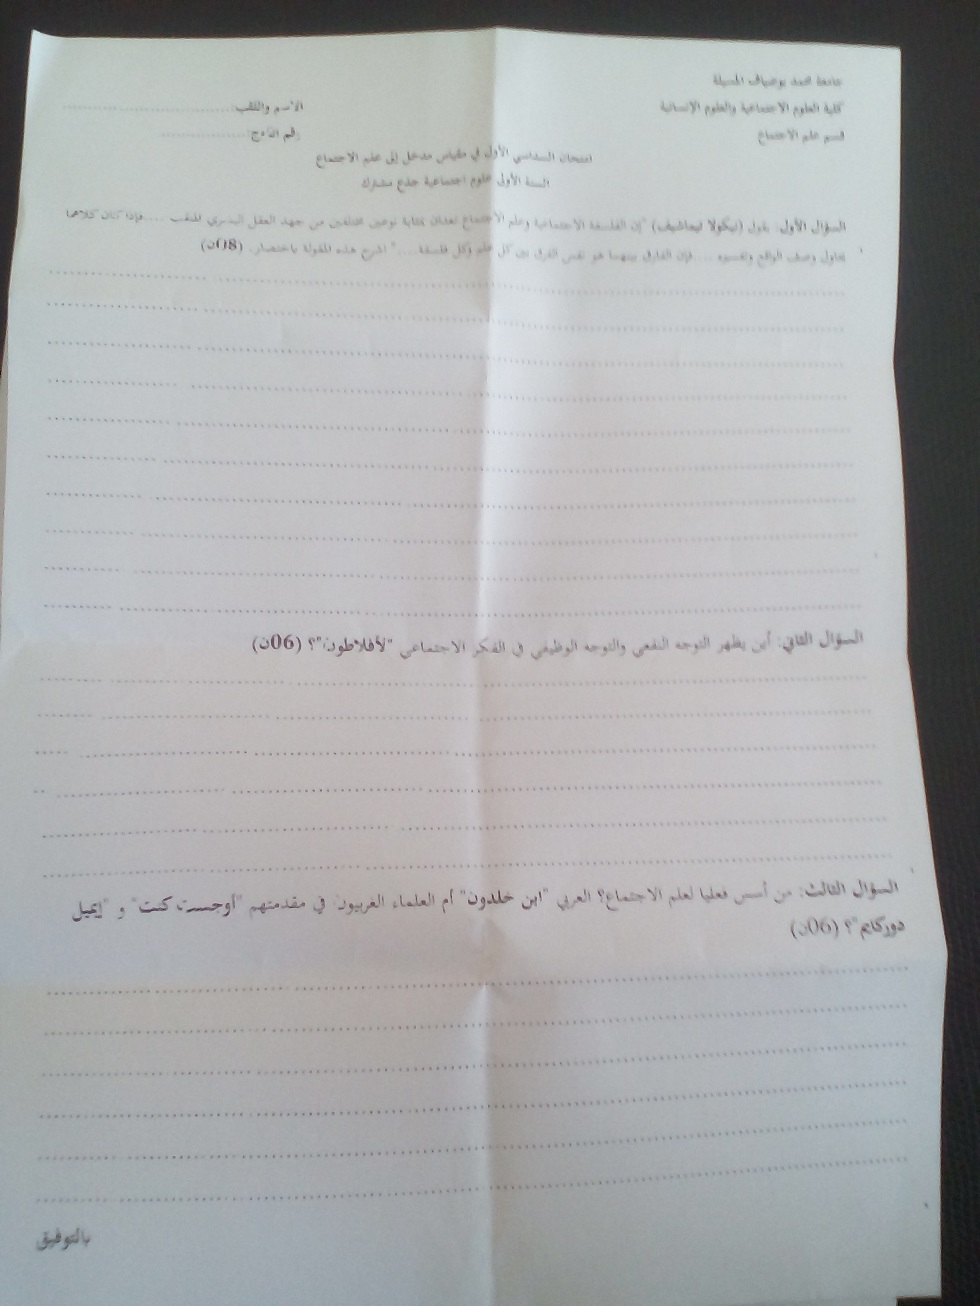 جامعة محمد بوضياف المسيلة
كلية العلوم الاجتماعية والعلوم الإنسانية
الاسم واللقب:..............................
قسم علم الاجتماع
رقم الفوج:....................
امتحان السداسي الأول في مقياس مدخل إلى علم الاجتماع
السنة الأولى علوم اجتماعية جذع مشترك
السؤال الأول: يقول (نيكولا تيماشيف) "إن الفلسفة الاجتماعية وعلم الاجتماع تعدان بمثابة نوعين مختلفين من جهد العقل البشري للتنقيب ....فإذا كان كلاهما
يحاول وصف الواقع وتفسيره ....فإن الفارق بينهما هو نفس الفرق بين كل علم وكل فلسفة...." اشرح هذه المقولة باختصار. (08ن)
السؤال الثاني: أين يظهر التوجه النفعي والتوجه الوظيفي في الفكر الاجتماعي "لأفلاطون"؟ (06ن)
السؤال الثالث: من أسس فعليا لعلم الاجتماع؟ العربي "ابن خلدون" أم العلماء الغربيون في مقدمتهم "أوجست كنت" و "إيميل
دوركايم"؟ (06ن)
بالتوفيق